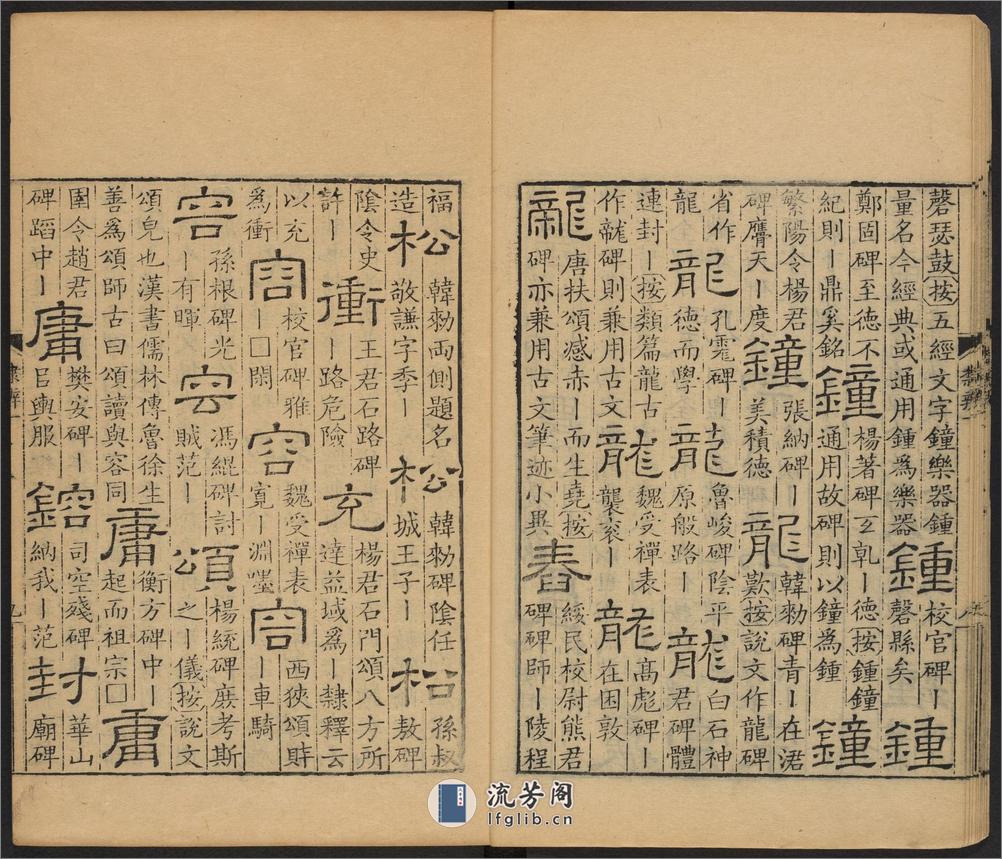 磬瑟鼓按五經文字鐘樂器鍾
量名今經典或通用鍾爲樂器
鍾
校官碑〡
磬縣矣
鍾
鄭固碑至德不
紀則〡鼎奚銘
鐘
楊著碑玄乾〡德按鍾鐘
通用故碑則以鐘為鍾
鐘
繁陽令楊君
碑膺天〡度
鐘
張納碑〡
美積德
龍
韓勑碑青〡在涒
歎按說文作龍碑
省作
龍
龍
孔龗碑
德而學
龍
魯峻碑陰平
原般路〡
龍
白石神
君碑體
連封〡按類篇龍古
作竜碑則兼用古文
龍
魏受禪表
龔衮〡
龍
高彪碑〡
在困敦
龍
唐扶頌感赤〡而生堯按
碑亦兼用古文筆迹小異
舂
綏民校尉熊君
碑碑師〡陵程
福
造
松
韓勑兩側題名
敬謙字季〡
松
韓勑碑陰任
城王子〡
松
孫叔
敖碑
陰令史
許〡
衝
王君石路碑
〡路危險
充
楊君石門頌八方所
達益域爲〡隸釋云
以充
爲衝
容
校官碑雅
〡□閑
容
魏受禪表
寬〡淵嘿
容
西狹頌時
〡車騎
容
孫根碑光
〡有暉
容
馮緄碑討
賊范〡
頌
楊統碑庶考斯
之〡儀按說文
頌皃也漢書儒林傳魯徐生
善爲頌師古曰頌讀與容同
庸
衡方碑中〡
起而祖宗□
庸
圉令趙君
碑蹈中〡
庸
樊安碑〡
㠯輿服
鎔
司空殘碑
納我〡范
封
華山
廟碑
流芳阁
lfglib.cn